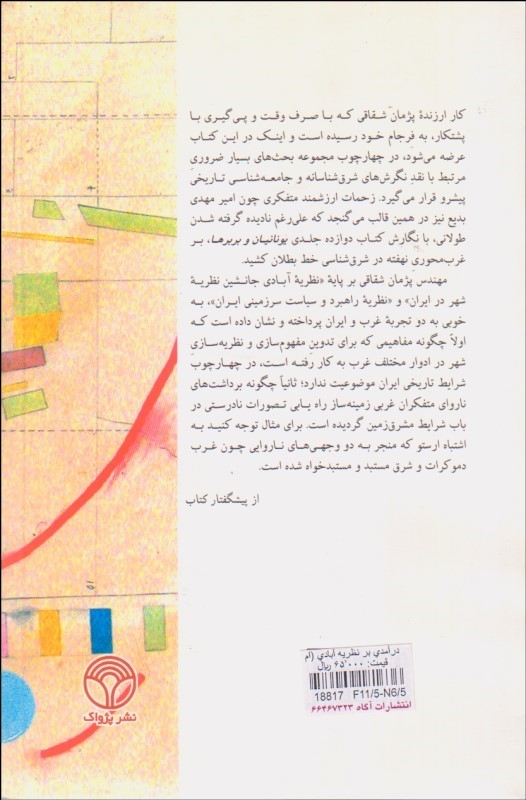 کار ارزندهٔ پژمان شقاقی که با صرف وقت و پی‌گیری با
پشتکار، به فرجام خود رسیده است و اینک در این کتاب
عرضه می‌شود، در چهارچوب مجموعه بحث‌های بسیار ضروری
مرتبط با نقد نگرش‌های شرق‌شناسانه و جامعه‌شناسی تاریخی
پیشرو قرار می‌گیرد. زحمات ارزشمند متفکری چون امیر مهدی
بدیع نیز در همین قالب می‌گنجد که علی‌رغم نادیده گرفته شدن
طولانی، با نگارش کتاب دوازده جلدی یونانیان و بربرها، بر
غرب‌محوری نهفته در شرق‌شناسی خط بطلان کشید.
مهندس پژمان شقاقی بر پایهٔ «نظریهٔ آبادی جانشین نظریهٔ
شهر در ایران» و «نظریهٔ راهبرد و سیاست سرزمینی ایران»، به
خوبی به دو تجربهٔ غرب و ایران پرداخته و نشان داده است که
اولاً چگونه مفاهیمی که برای تدوین مفهوم‌سازی و نظریه‌سازی
شهر در ادوار مختلف غرب به کار رفته است، در چهارچوب
شرایط تاریخی ایران موضوعیت ندارد؛ ثانیاً چگونه برداشت‌های
ناروای متفکران غربی زمینه‌ساز راه یابی تصورات نادرستی در
باب شرایط مشرق‌زمین گردیده است. برای مثال توجه کنید به
اشتباه ارستو که منجر به دو وجهی‌های ناروایی چون غرب
دموکرات و شرق مستبد و مستبدخواه شده است.
از پیشگفتار کتاب
درآمدی بر نظریه آبادی (ام
قیمت: ۶۵٬۰۰۰ ریال
18817 F11/5-N6/5
انتشارات آگاه ۶۶۴۶۷۳۲۳
نشر پژواک